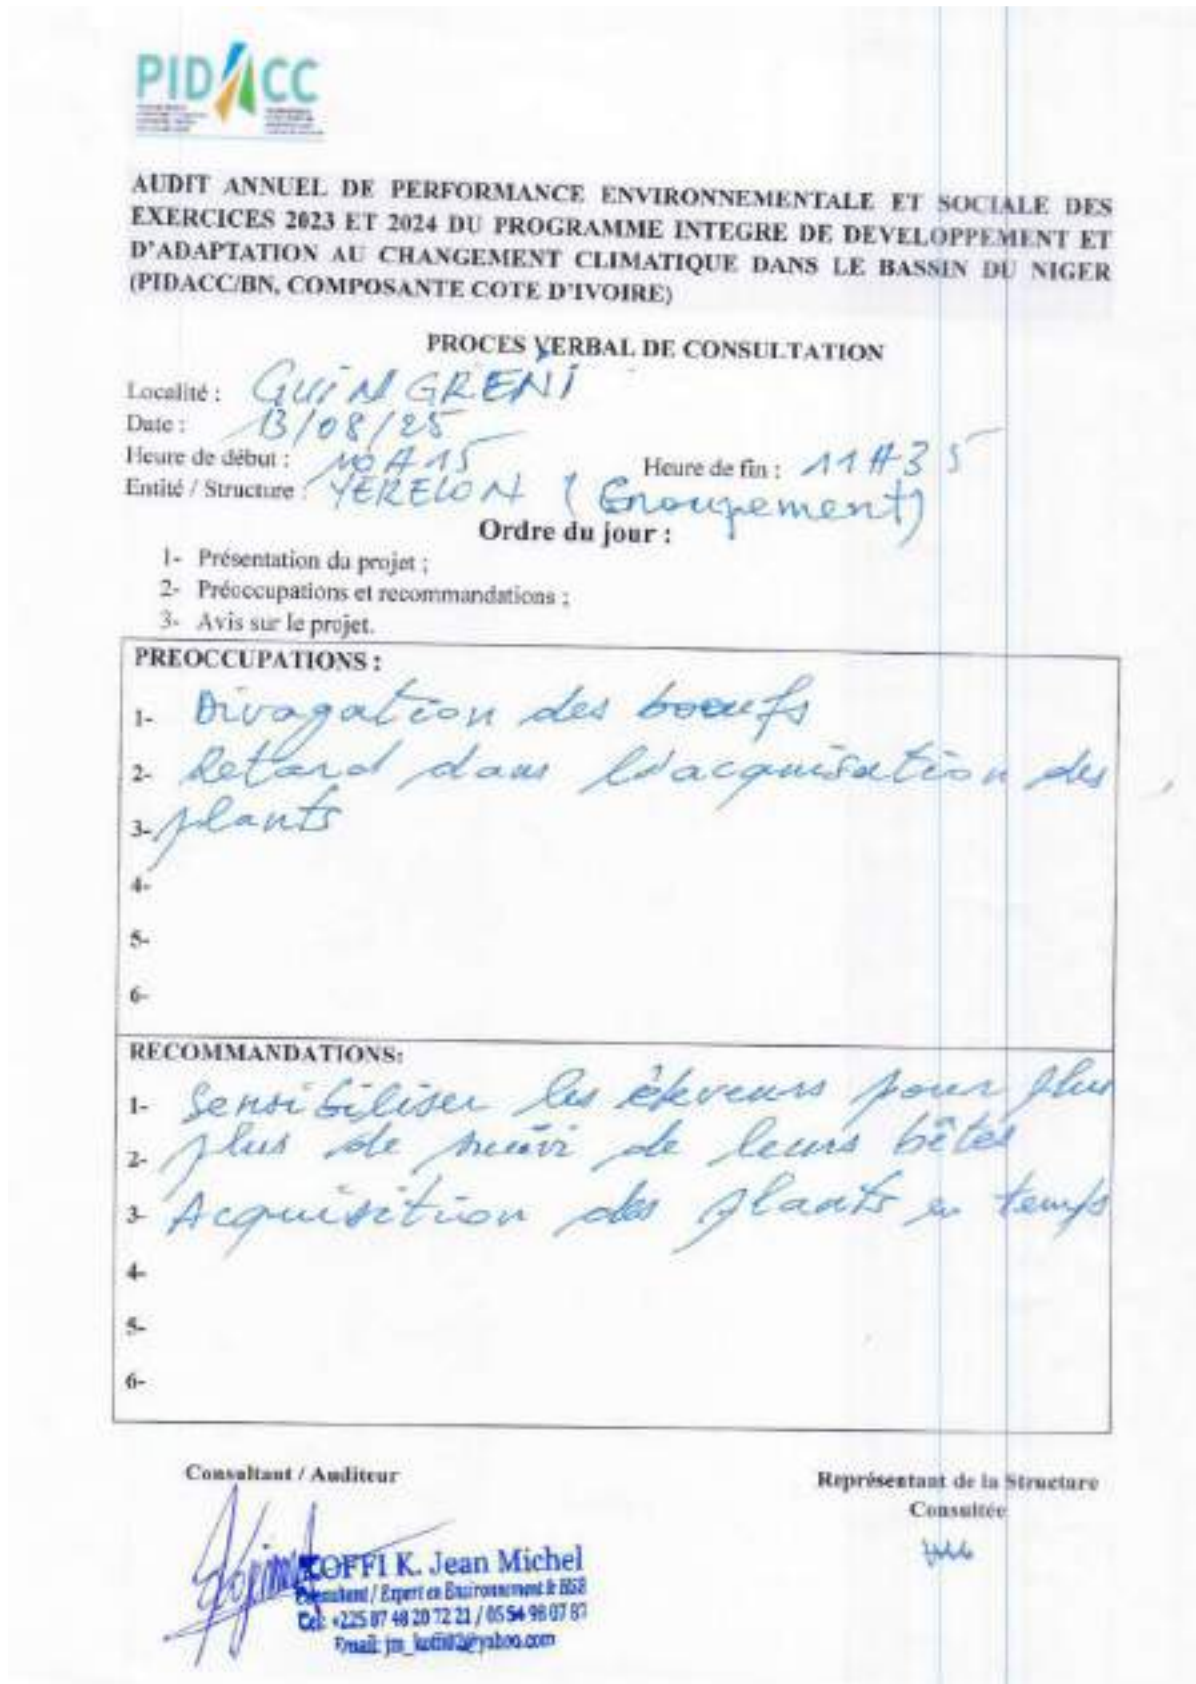 PIDACC
AUDIT ANNUEL DE PERFORMANCE ENVIRONNEMENTALE ET SOCIALE DES
EXERCICES 2023 ET 2024 DU PROGRAMME INTEGRE DE DEVELOPPEMENT ET
D'ADAPTATION AU CHANGEMENT CLIMATIQUE DANS LE BASSIN DU NIGER
(PIDACC/BN, COMPOSANTE COTE D'IVOIRE)
PROCES VERBAL DE CONSULTATION
Localité : GUINGRENI
Date : 13/08/25
Heure de début : 10H15 Heure de fin : 11H35
Entité / Structure : YERELON (Groupement)
Ordre du jour :
1- Présentation du projet ;
2- Préoccupations et recommandations ;
3- Avis sur le projet.
PREOCCUPATIONS :
1- Divagation des boeufs
2- Retard dans l'acquisation des
3- plants
4-
5-
6-
RECOMMANDATIONS:
1- Sensibiliser les éleveurs pour plus
2- plus de suivi de leurs bêtes
3- Acquisition des plants en temps
4-
5-
6-
Consultant / Auditeur
Représentant de la Structure
Consultée
KOFFI K. Jean Michel
Consultant / Expert en Environnement &
Cel: +225 87 48 20 72 21 / 05 54 98 07 87
Email: jm_koffi02@yahoo.com